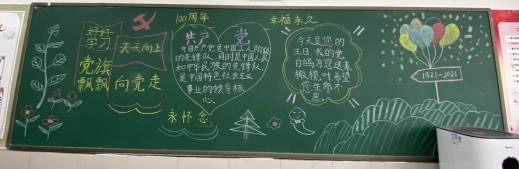 好好
学习
天天向上
党旗
飘飘
向党走
100周年
共产党
中国共产党是中国工人阶级
的先锋队,同时是中国人民
和中华民族的先锋队,
是中国特色社会主义
事业的领导核
心。
永怀念
幸福永久
今天是您的
生日,我的中
国
白鸽为您衔来
橄榄叶
您生命不
息
1921-2021